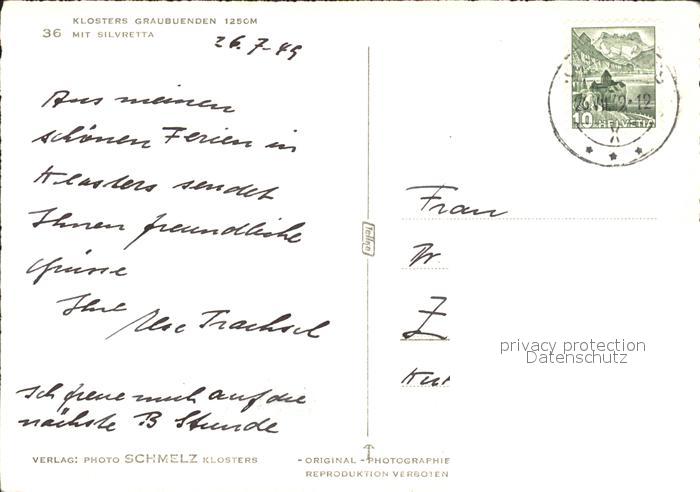 KLOSTERS GRAUBUENDEN 1250M
36 MIT SILVRETTA
26.7-49
Aus meinen
schönen Ferien in
Klosters sendet
Ihnen freundliche
Grüsse
Ihre
Ilse Trachsel
Ich freue mich auf die
nächste B Stunde
VERLAG: PHOTO SCHMELZ KLOSTERS
Frau
W.
Z
privacy protection
Datenschutz
- ORIGINAL - PHOTOGRAPHIE
REPRODUKTION VERBOTEN
10 HELVETIA